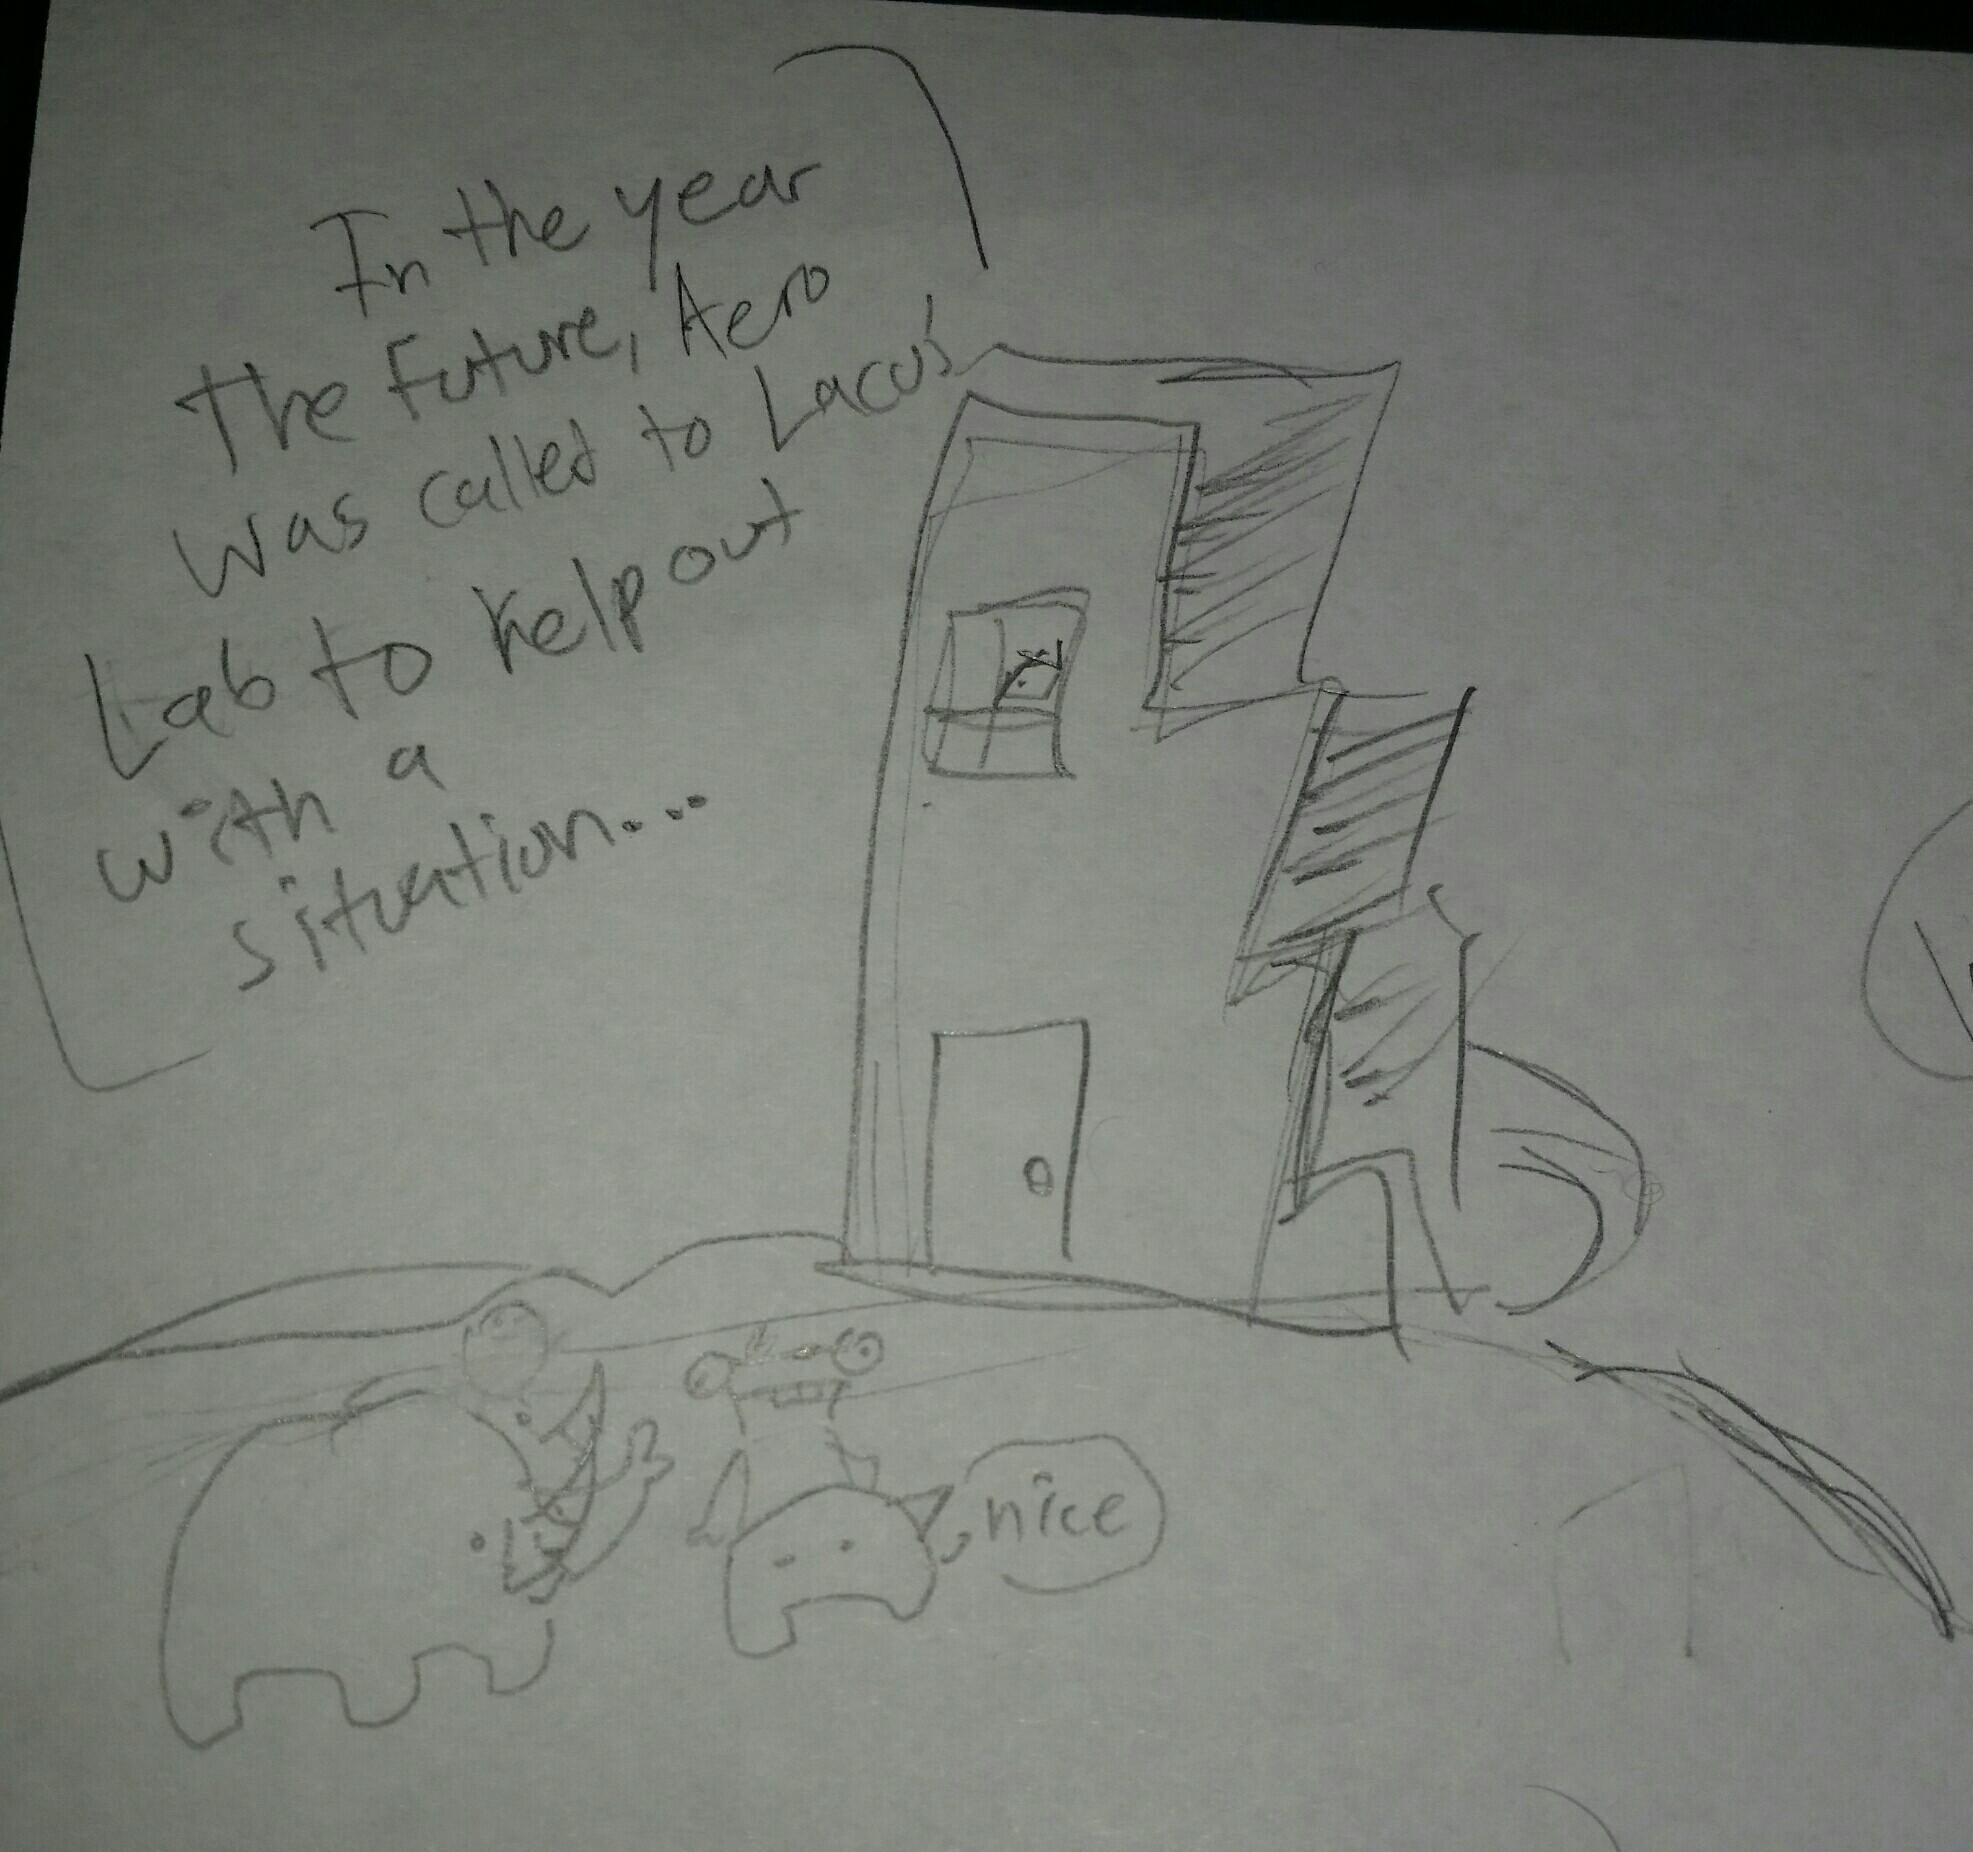 In the year
The Future, Aero
was called to Lacus'
Lab to help out
with a
situation...
nice